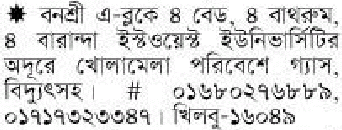 ✹ বনশ্রী এ-ব্লকে ৪ বেড, ৪ বাথরুম,
৪ বারান্দা ইস্টওয়েস্ট ইউনিভার্সিটির
অদূরে খোলামেলা পরিবেশে গ্যাস,
বিদ্যুৎসহ। # ০১৬৮০২৭৬৮৮৯,
০১৭১৭৩২৩৩৪৭। খিলবু-১৬০৪৯